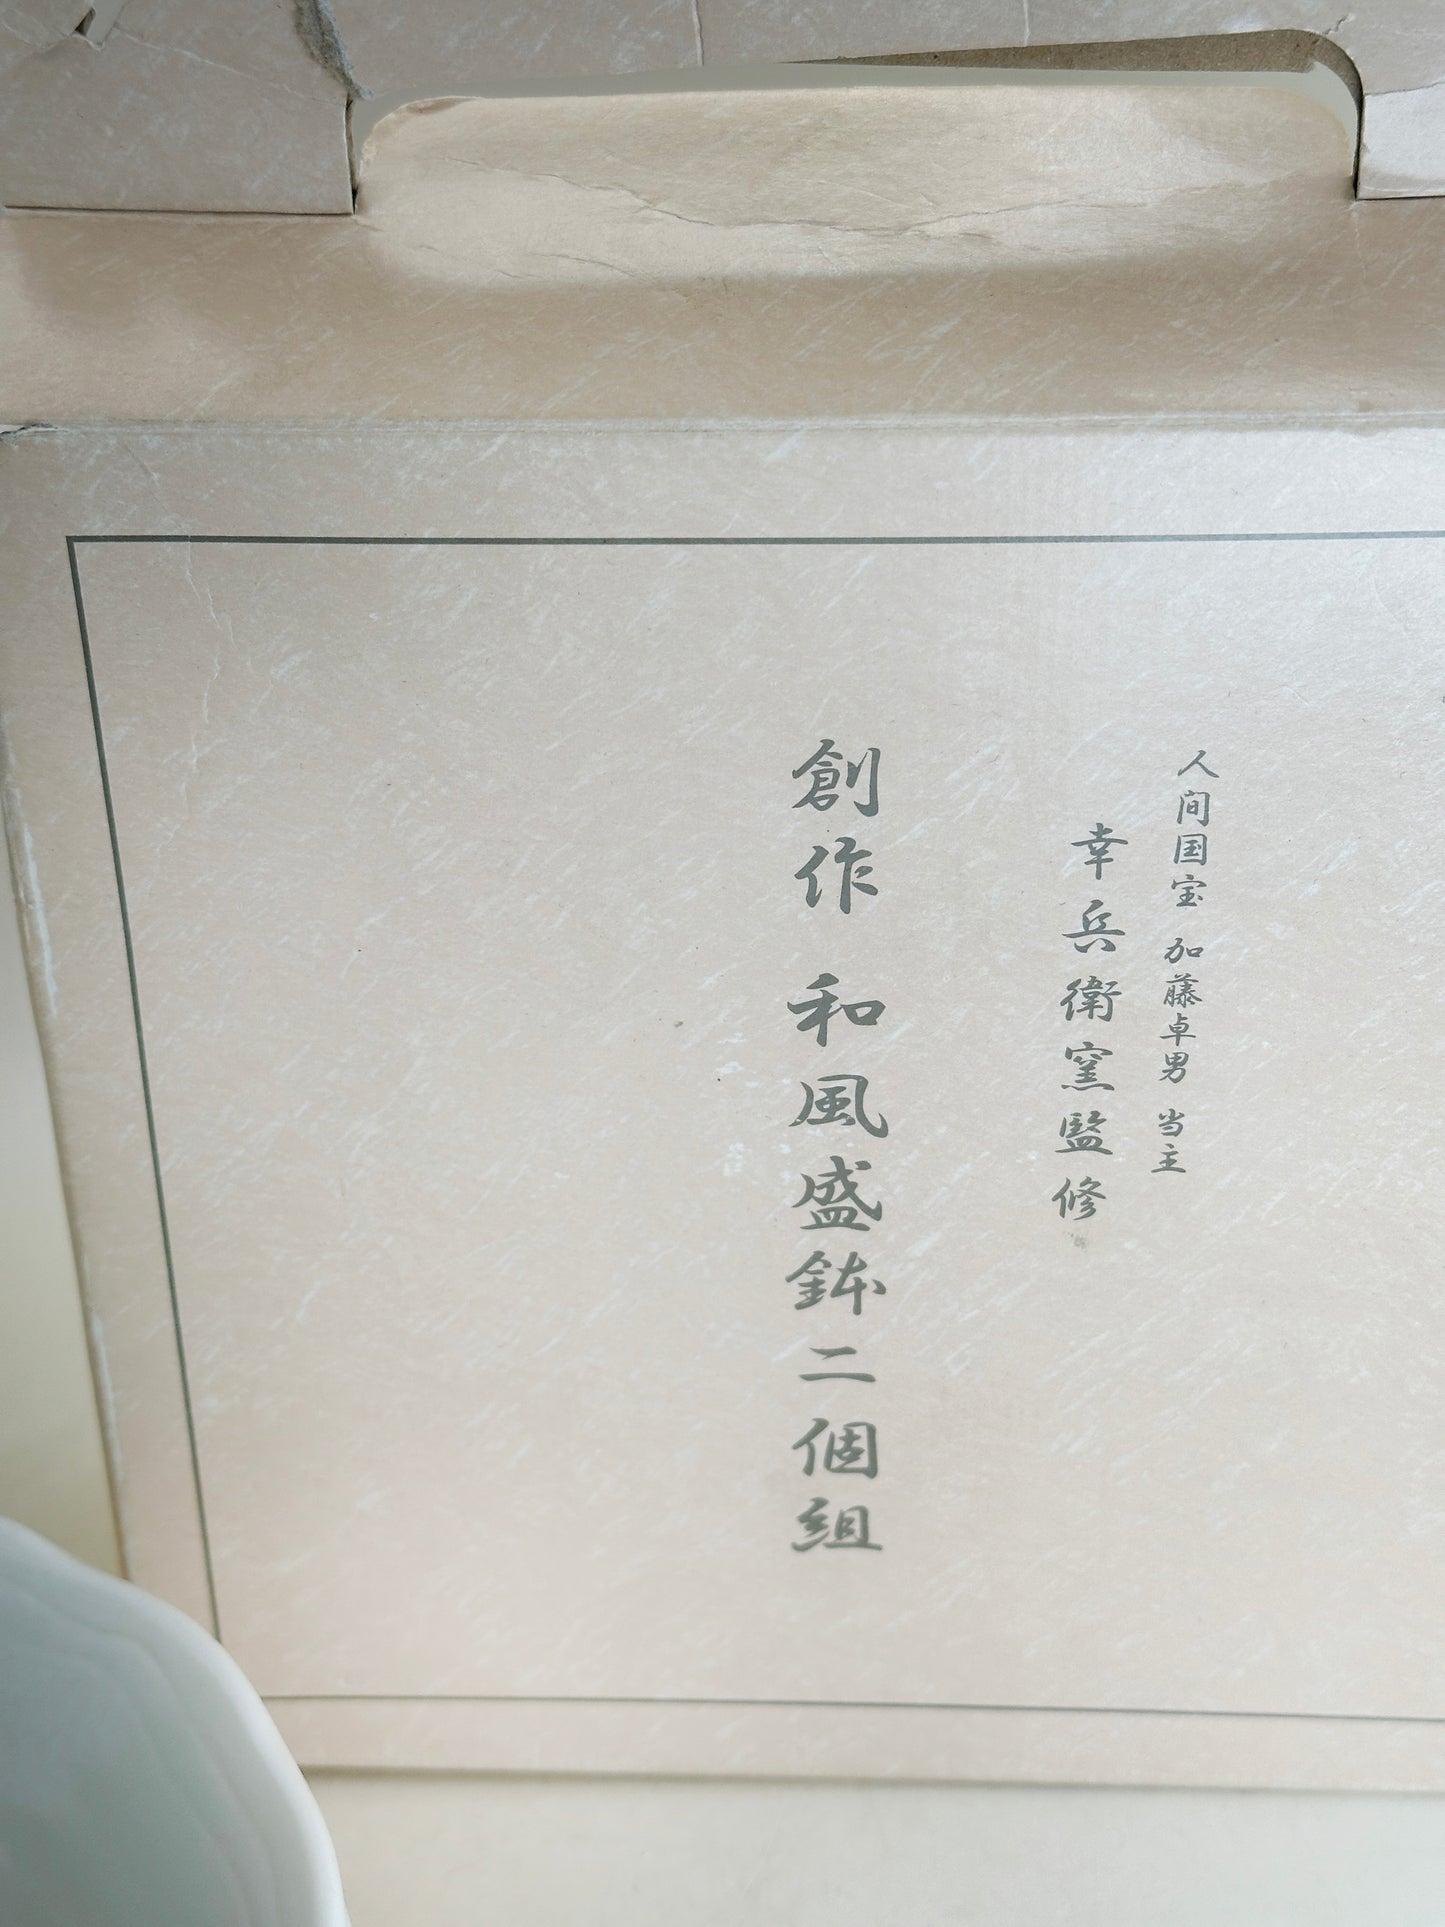 人間国宝 加藤卓男 当主
幸兵衛窯監修
創作 和風盛鉢二個組